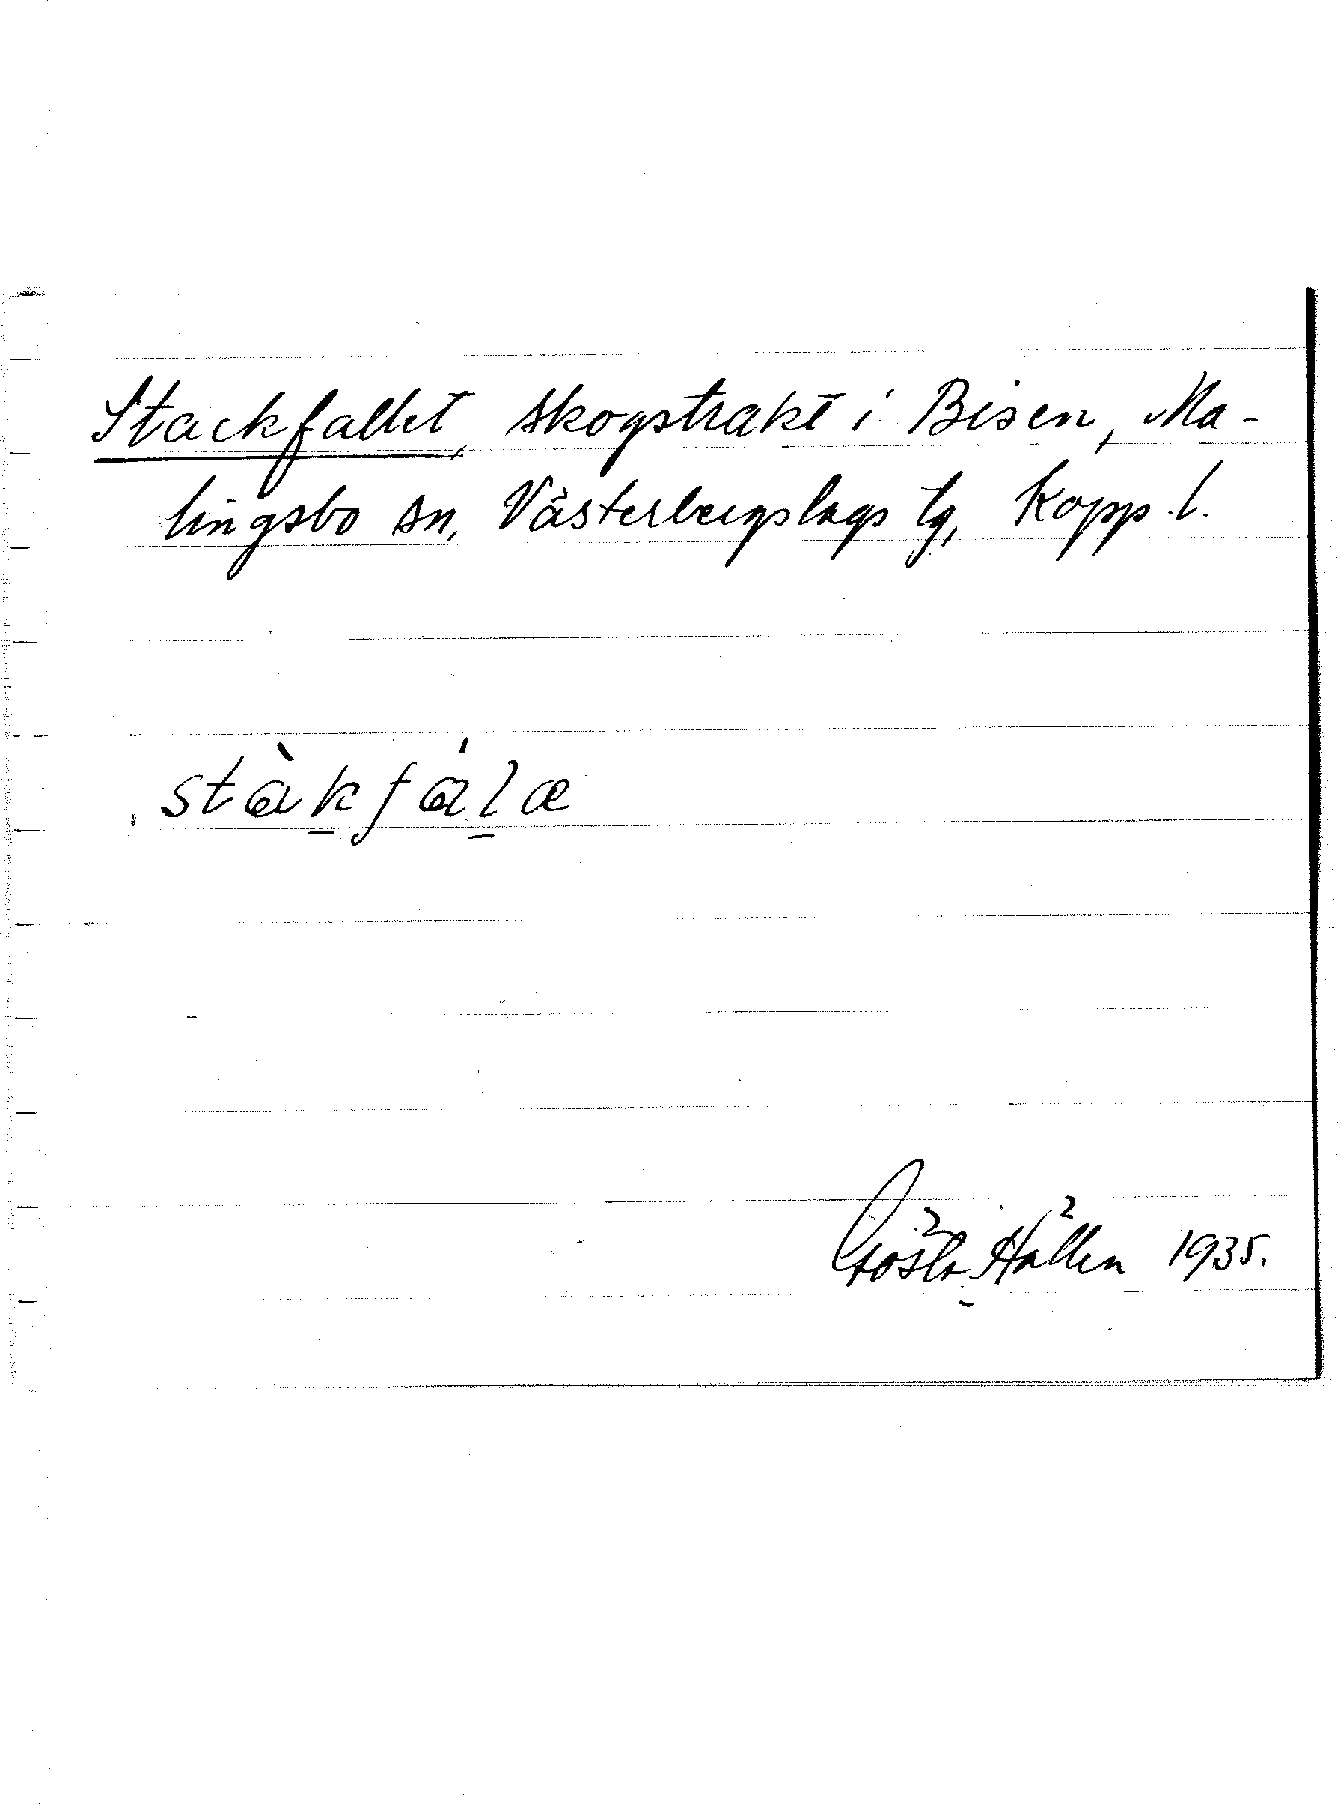 Stackfallet, skogstrakt i Bisen, Ma-
lingsbo sn, Västerbergslags tg, Kopp. l.
stàk̲fál̲æ
Gösta Hållen 1935.